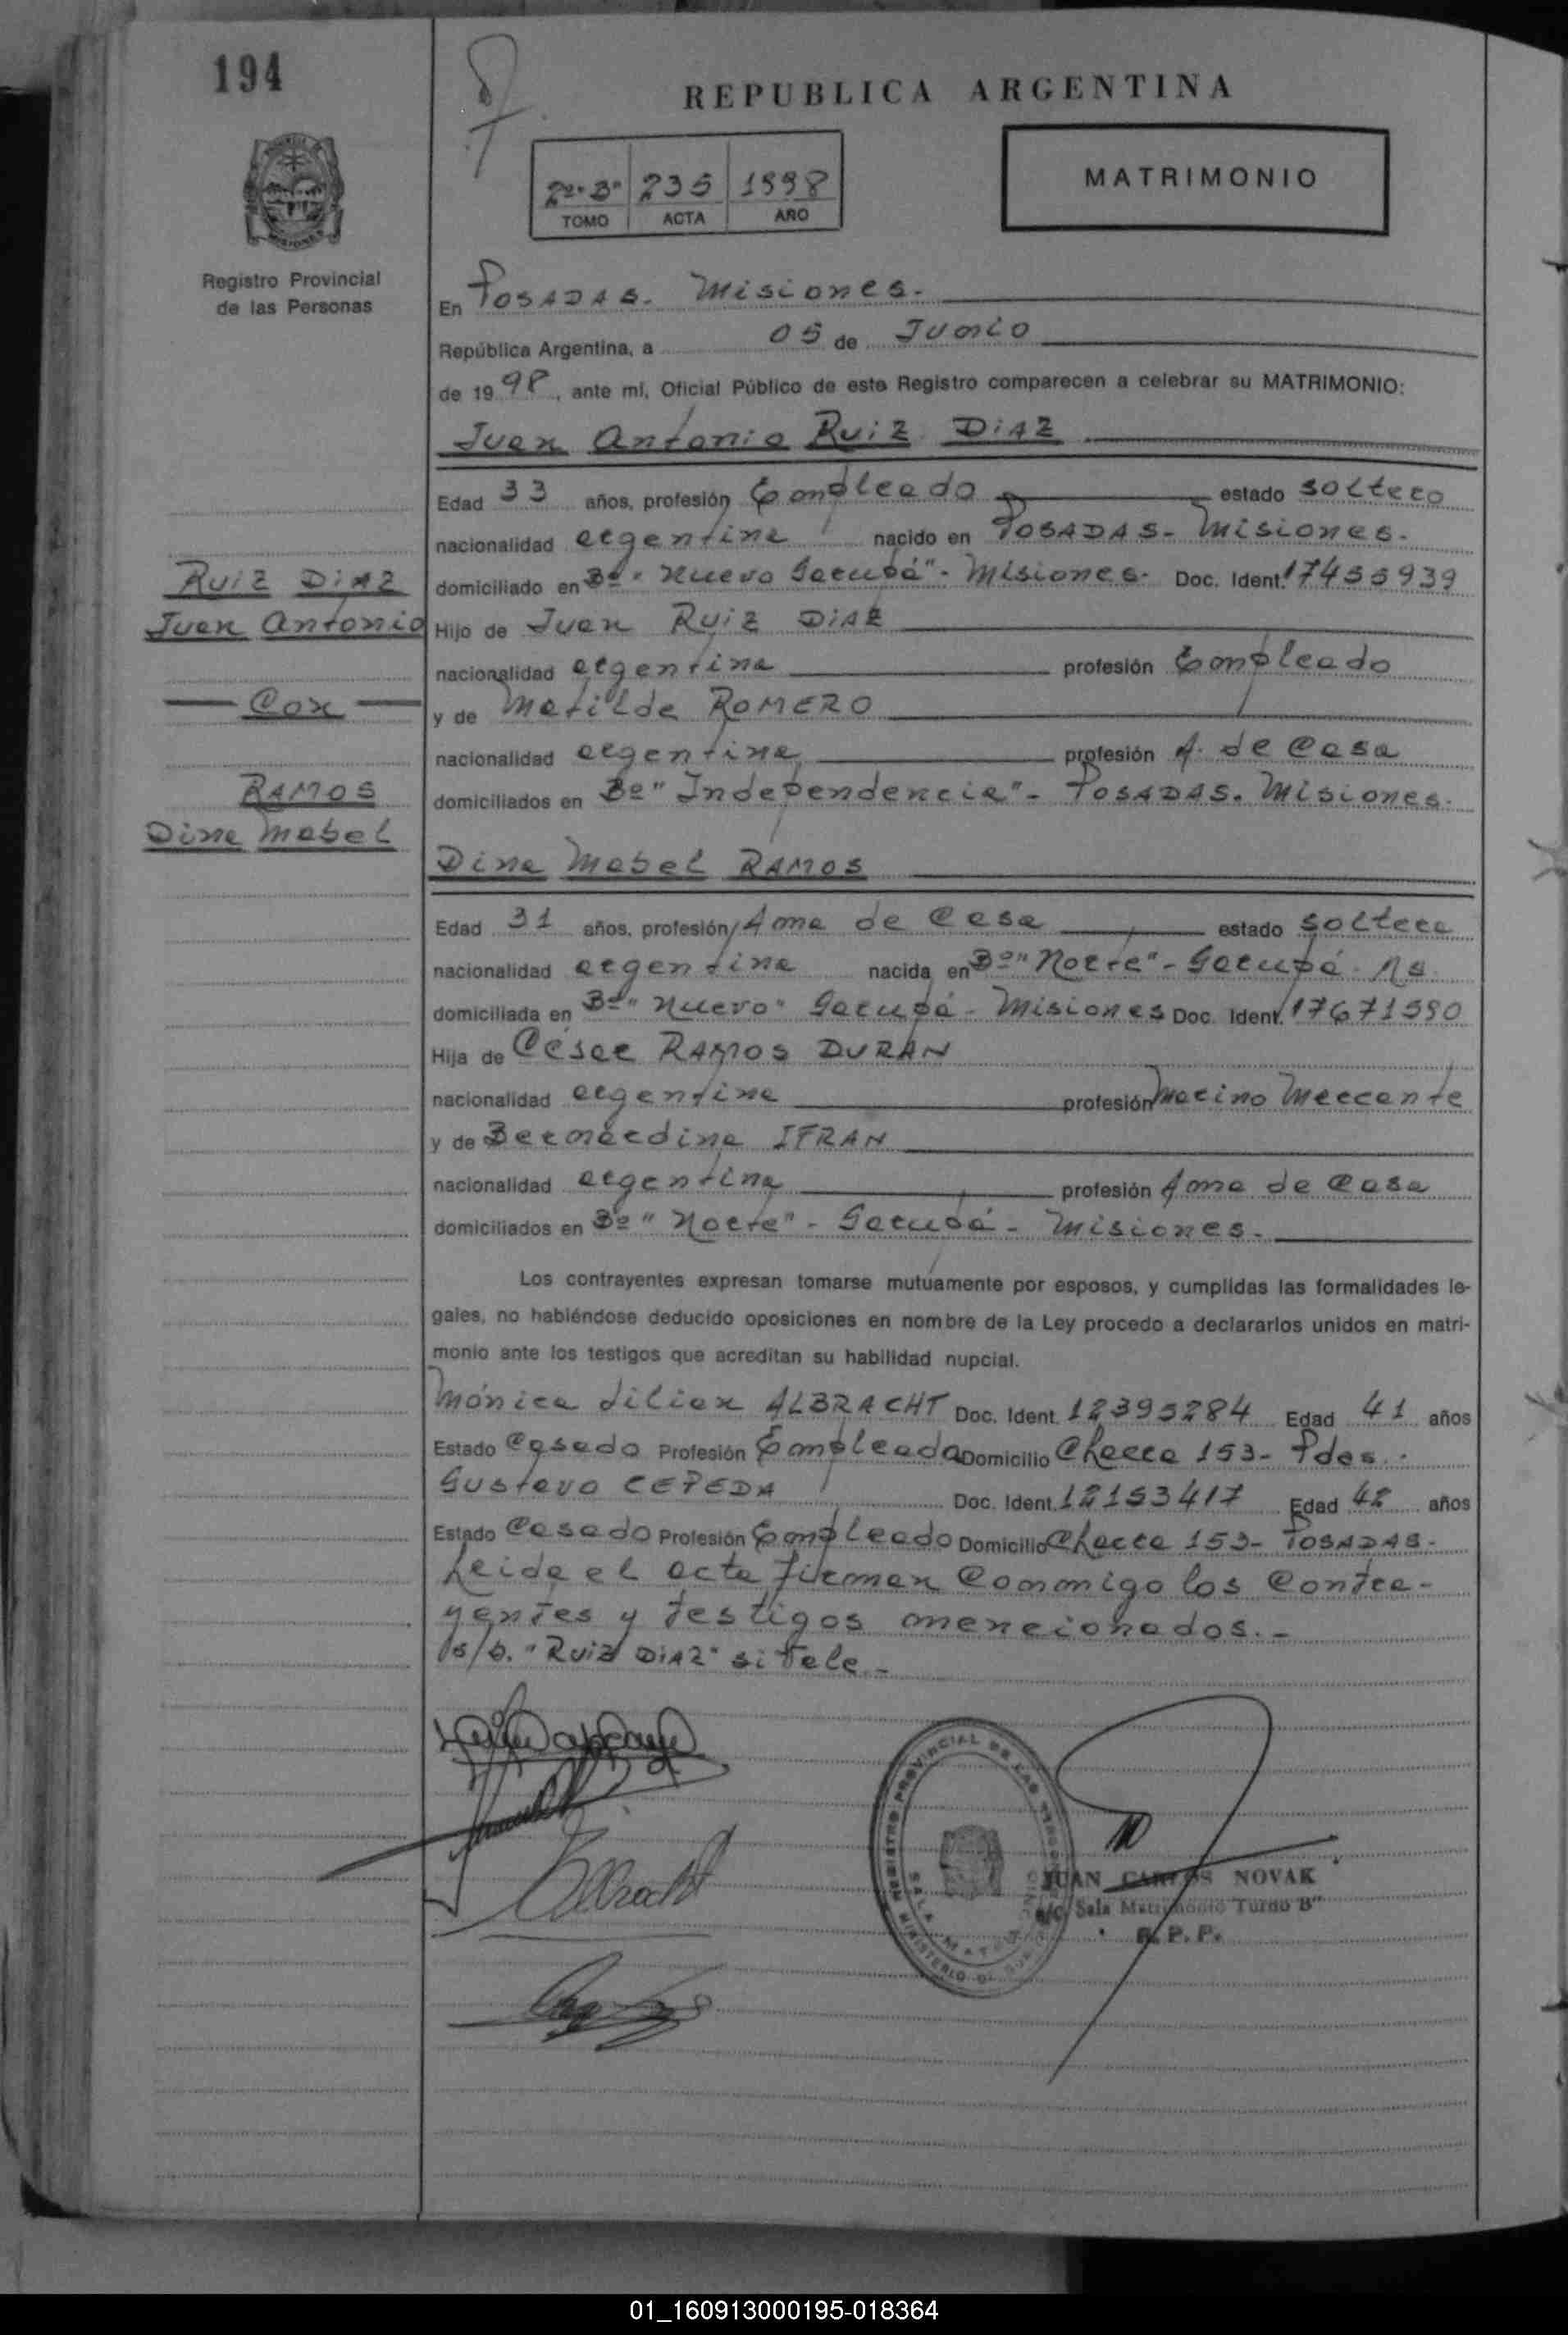 194
REPUBLICA ARGENTINA
2º-Bº 235 1998
TOMO ACTA AÑO
MATRIMONIO
Registro Provincial
de las Personas
En POSADAS. Misiones.
República Argentina, a 05 de Junio
de 1998, ante mí, Oficial Público de este Registro comparecen a celebrar su MATRIMONIO:
Juan Antonio RUIZ DIAZ
Edad 33 años, profesión Empleado estado soltero
nacionalidad argentina nacido en POSADAS- Misiones.
domiciliado en Bº "Nuevo Garupá"- Misiones- Doc. Ident. 17455939
Hijo de Juan RUIZ DIAZ
nacionalidad argentina profesión Empleado
y de Matilde ROMERO
nacionalidad argentina profesión A. de Casa
domiciliados en Bº "Independencia"- POSADAS. Misiones.
RUIZ DIAZ
Juan Antonio
Con
RAMOS
Dina Mabel
Dina Mabel RAMOS
Edad 31 años, profesión Ama de Casa estado soltera
nacionalidad argentina nacida en Bº "Norte"- Garupá. Ms.
domiciliada en Bº "Nuevo" Garupá- Misiones Doc. Ident. 17671590
Hija de César RAMOS DURAN
nacionalidad argentina profesión Marino Mercante
y de Bernardina IFRAN
nacionalidad argentina profesión Ama de Casa
domiciliados en Bº "Norte"- Garupá- Misiones.
Los contrayentes expresan tomarse mutuamente por esposos, y cumplidas las formalidades le-
gales, no habiéndose deducido oposiciones en nombre de la Ley procedo a declararlos unidos en matri-
monio ante los testigos que acreditan su habilidad nupcial.
Mónica Lilian ALBRACHT Doc. Ident. 12395284 Edad 41 años
Estado Casado Profesión Empleada Domicilio Checca 153- Pdas.
Gustavo CEPEDA Doc. Ident. 12153417 Edad 42 años
Estado Casado Profesión Empleado Domicilio Checca 153- POSADAS-
Leida el acta firman conmigo los contra-
yentes y testigos mencionados.-
s/b. "RUIZ DIAZ" si vale.-
REGISTRO PROVINCIAL DE LAS PERSONAS
SALA MATRIMONIO
JUAN CARLOS NOVAK
a/c Sala Matrimonio Turno B"
R. P. P.
01_160913000195-018364